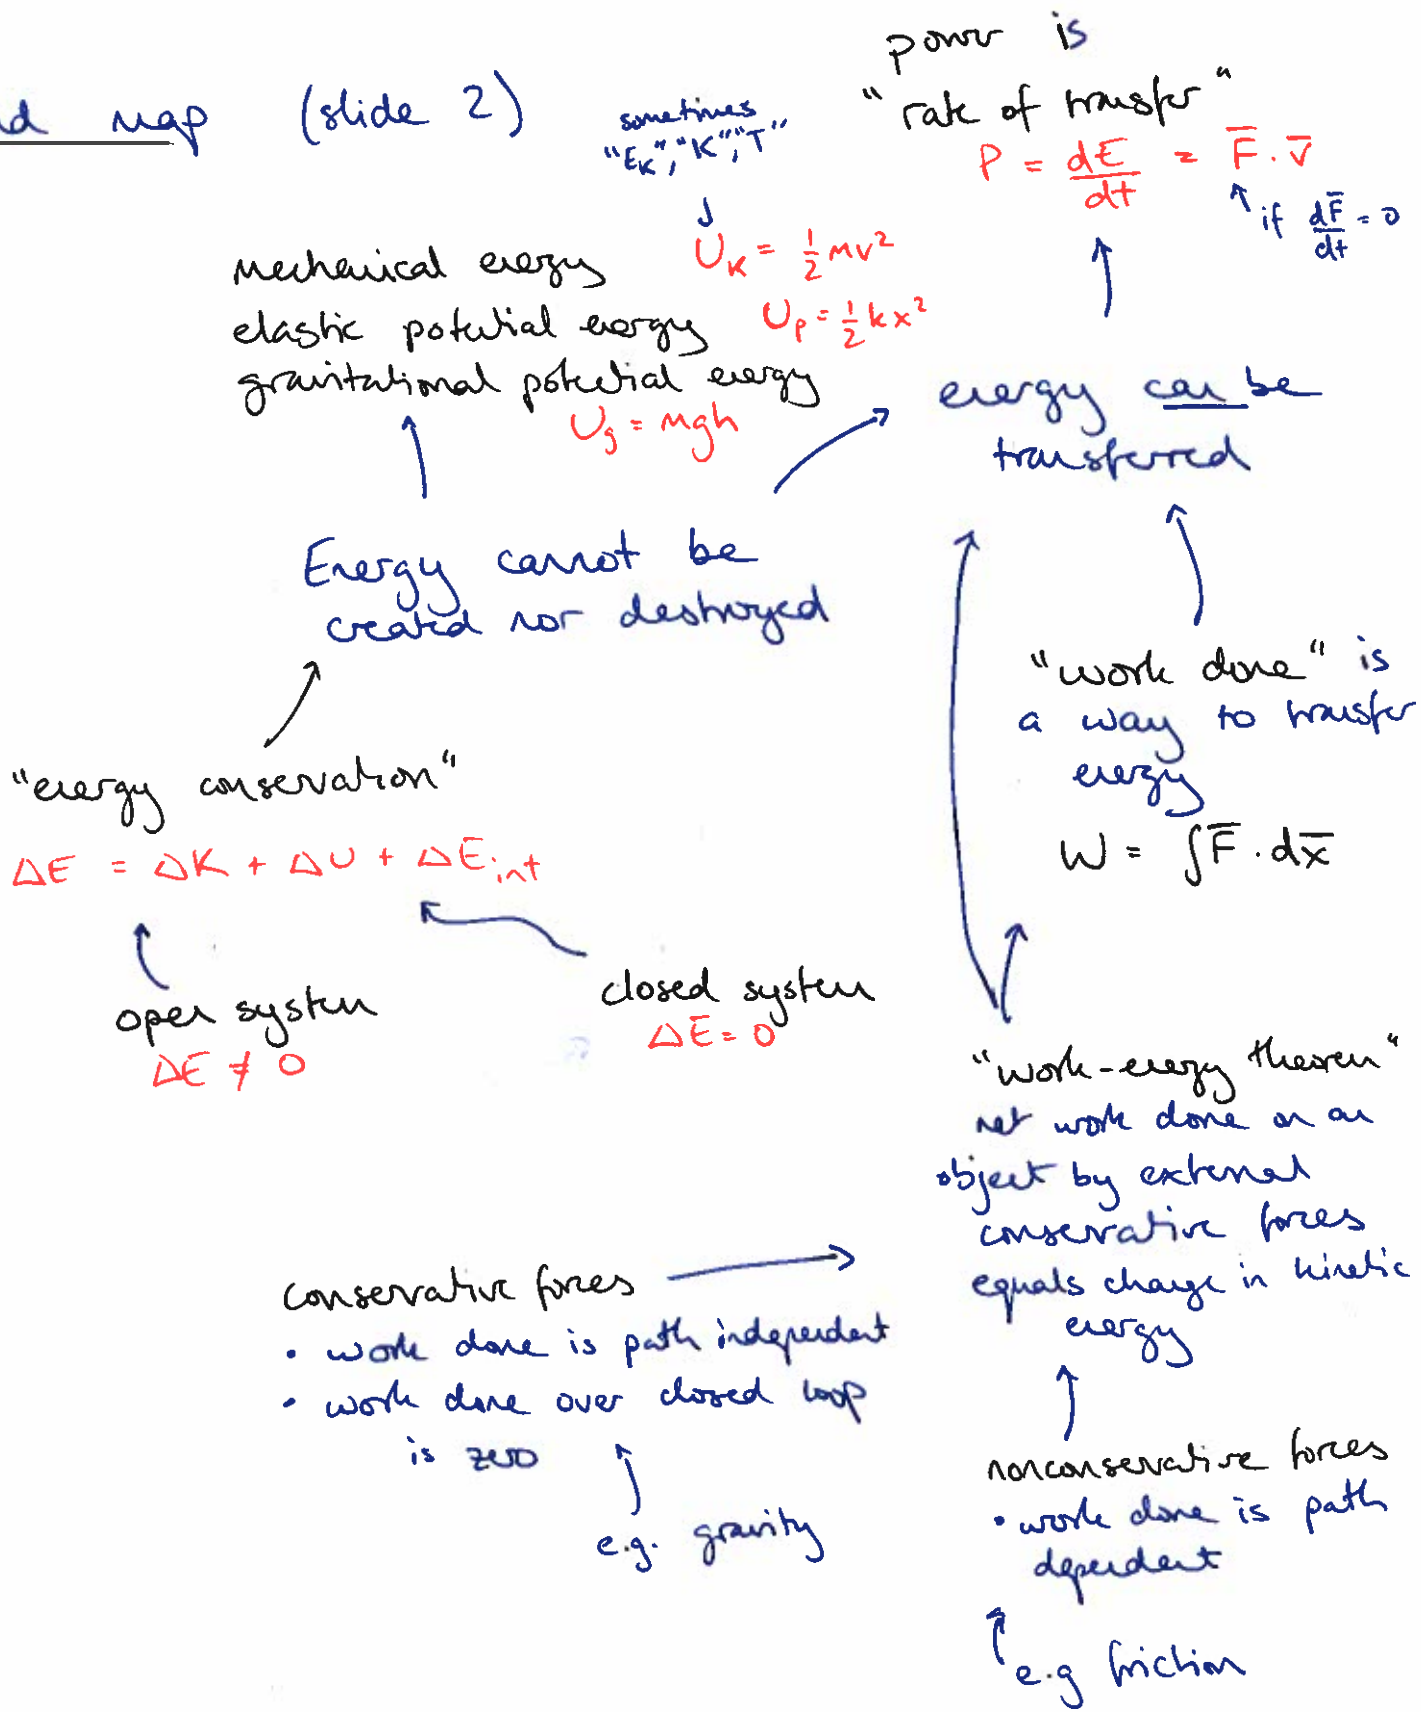 d map (slide 2)
sometimes
"E_K", "K", "T"
power is
"rate of transfer"
P = dE/dt = F̅ . v̅
if dF̅/dt = 0
mechanical energy U_K = ½ mv²
elastic potential energy U_p = ½ kx²
gravitational potential energy
U_g = mgh
energy can be
transferred
Energy cannot be
created nor destroyed
"work done" is
a way to transfer
energy
W = ∫F̅ . dx̅
"energy conservation"
ΔE = ΔK + ΔU + ΔE_int
open system
ΔE ≠ 0
closed system
ΔE = 0
"work-energy theorem"
net work done on an
object by external
conservative forces
equals change in kinetic
energy
conservative forces
• work done is path independent
• work done over closed loop
is zero
e.g. gravity
nonconservative forces
• work done is path
dependent
e.g friction